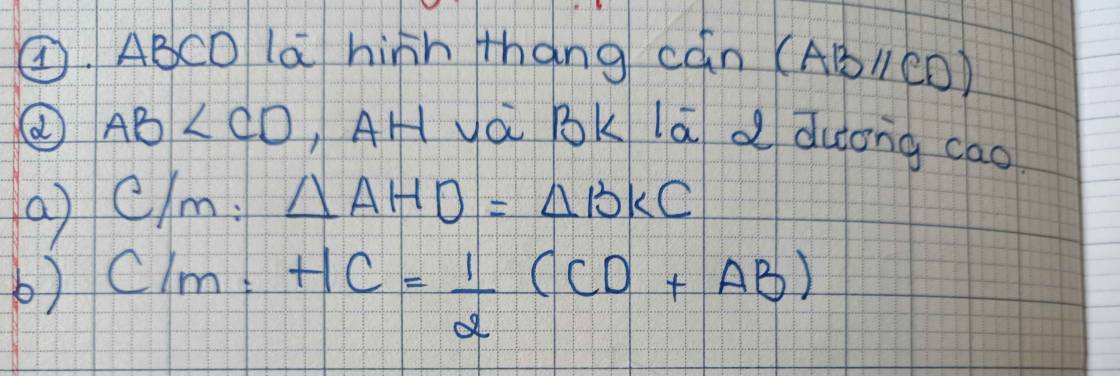 ①. ABCD là hình thang cân (AB//CD)
② AB < CD, AH và BK là 2 đường cao.
a) C/m: ΔAHD = ΔBKC
b) C/m: HC = 1/2 (CD + AB)